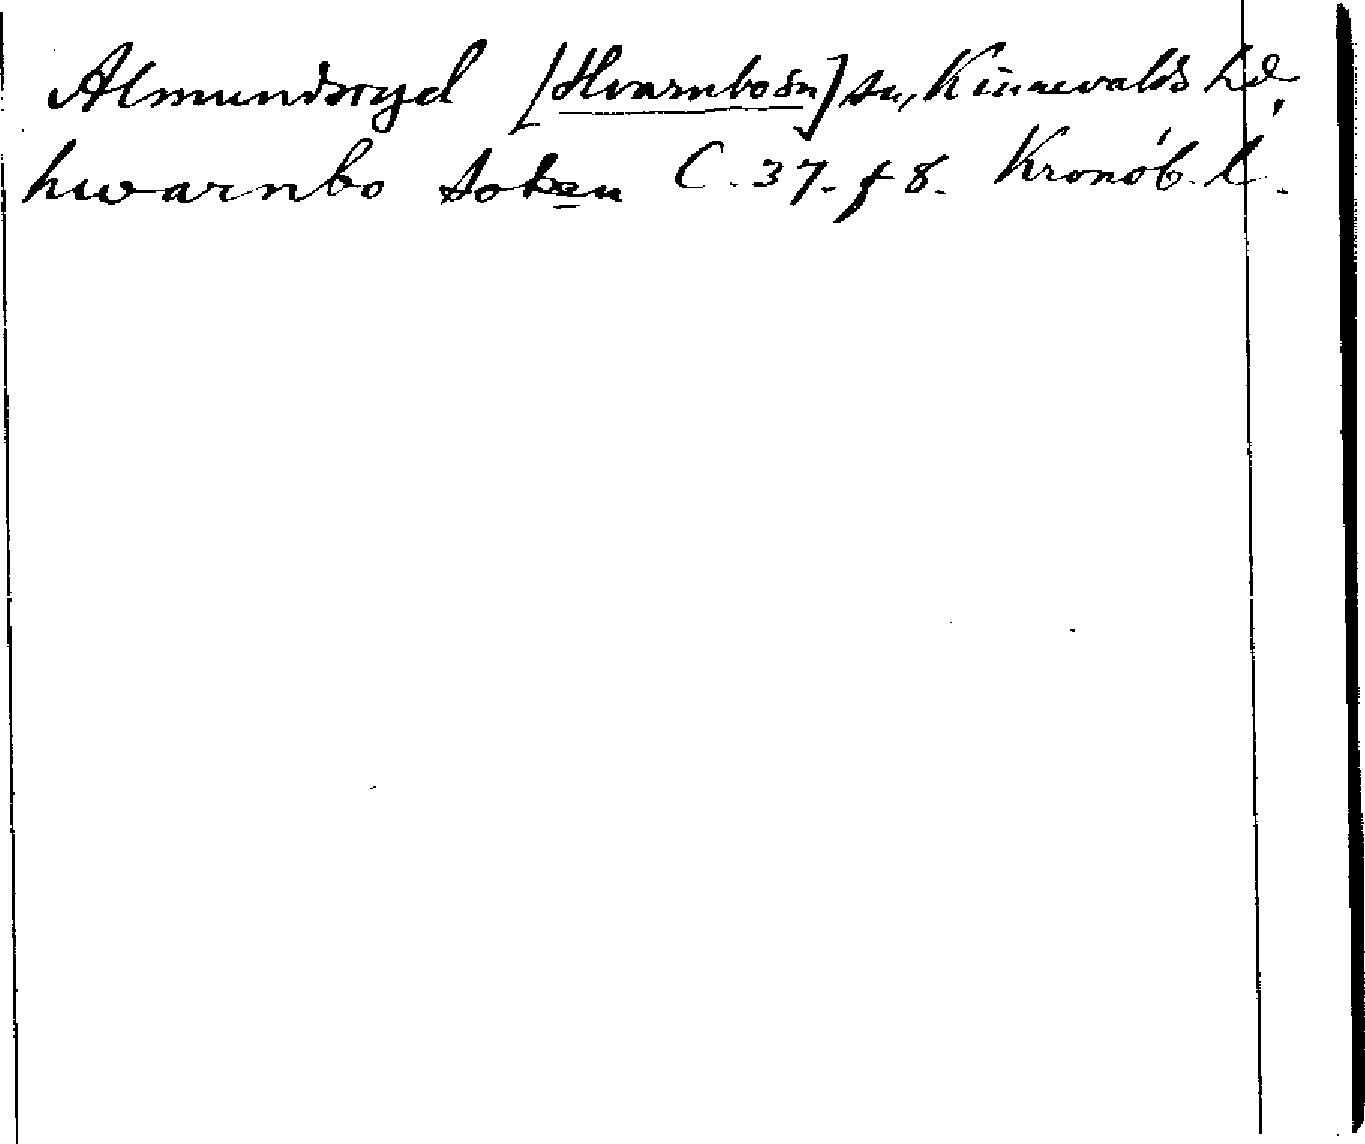 Almundsryd [Hvarnbo sn] sn, Kinnevalds hd,
hwarnbo soken C. 37. f 8. Kronob. l.